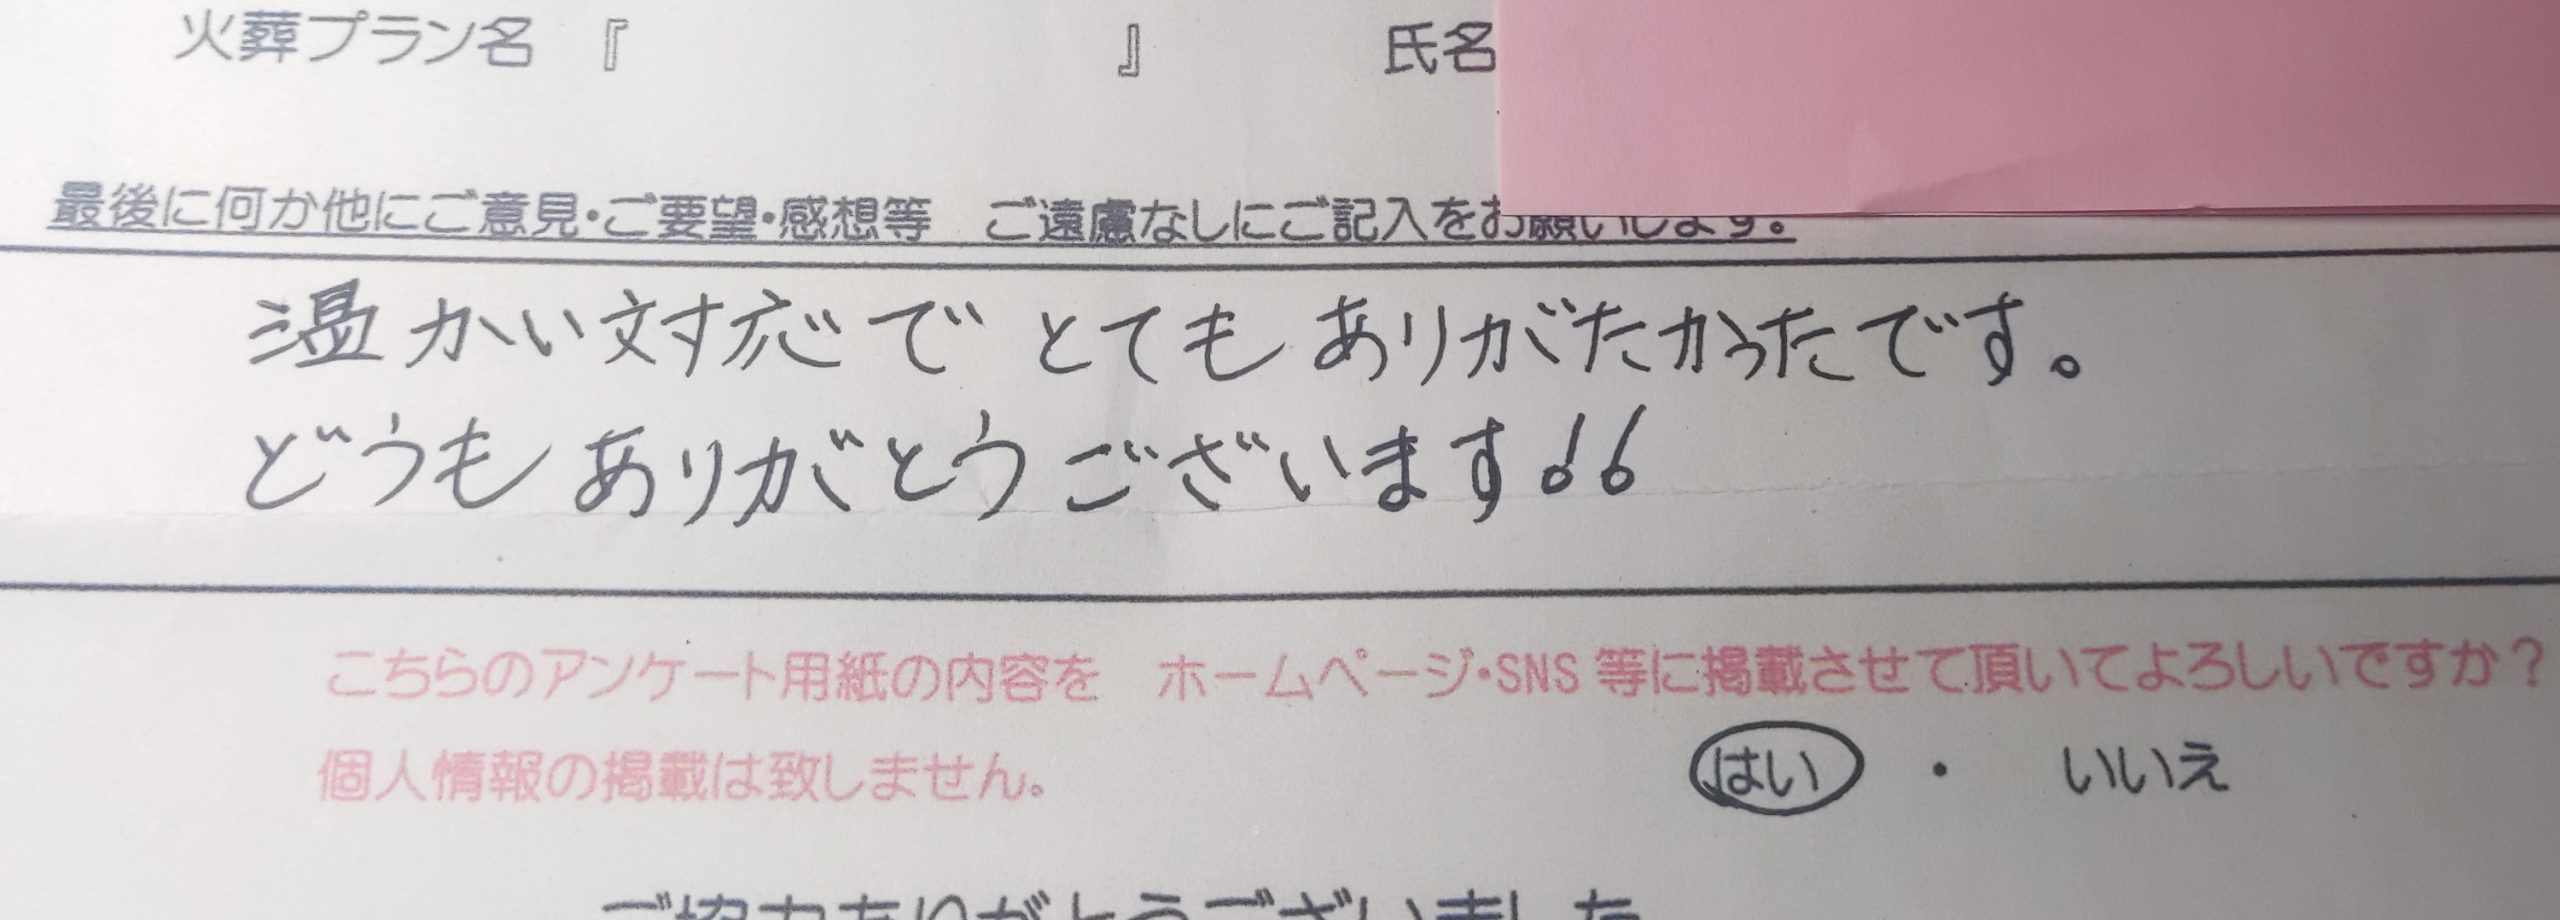 火葬プラン名 『 』 氏名
最後に何か他にご意見・ご要望・感想等 ご遠慮なしにご記入をお願いします。
温かい対応でとてもありがたかったです。
どうもありがとうございます!!
こちらのアンケート用紙の内容を ホームページ・SNS 等に掲載させて頂いてよろしいですか?
個人情報の掲載は致しません。 はい ・ いいえ
ご協力ありがとうございました